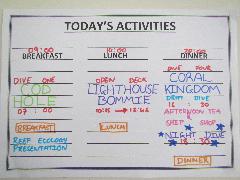 TODAY'S ACTIVITIES
09:00
BREAKFAST
DIVE ONE
COD
HOLE
07:00
BREAKFAST
REEF ECOLOGY
PRESENTATION
LUNCH
OPEN DECK
LIGHTHOUSE
BOMMIE
LUNCH
DINNER
DIVE FOUR
CORAL
KINGDOM
DRIFT DIVE
AFTERNOON TEA
SHIP SHOP
NIGHT DIVE
18:30
DINNER